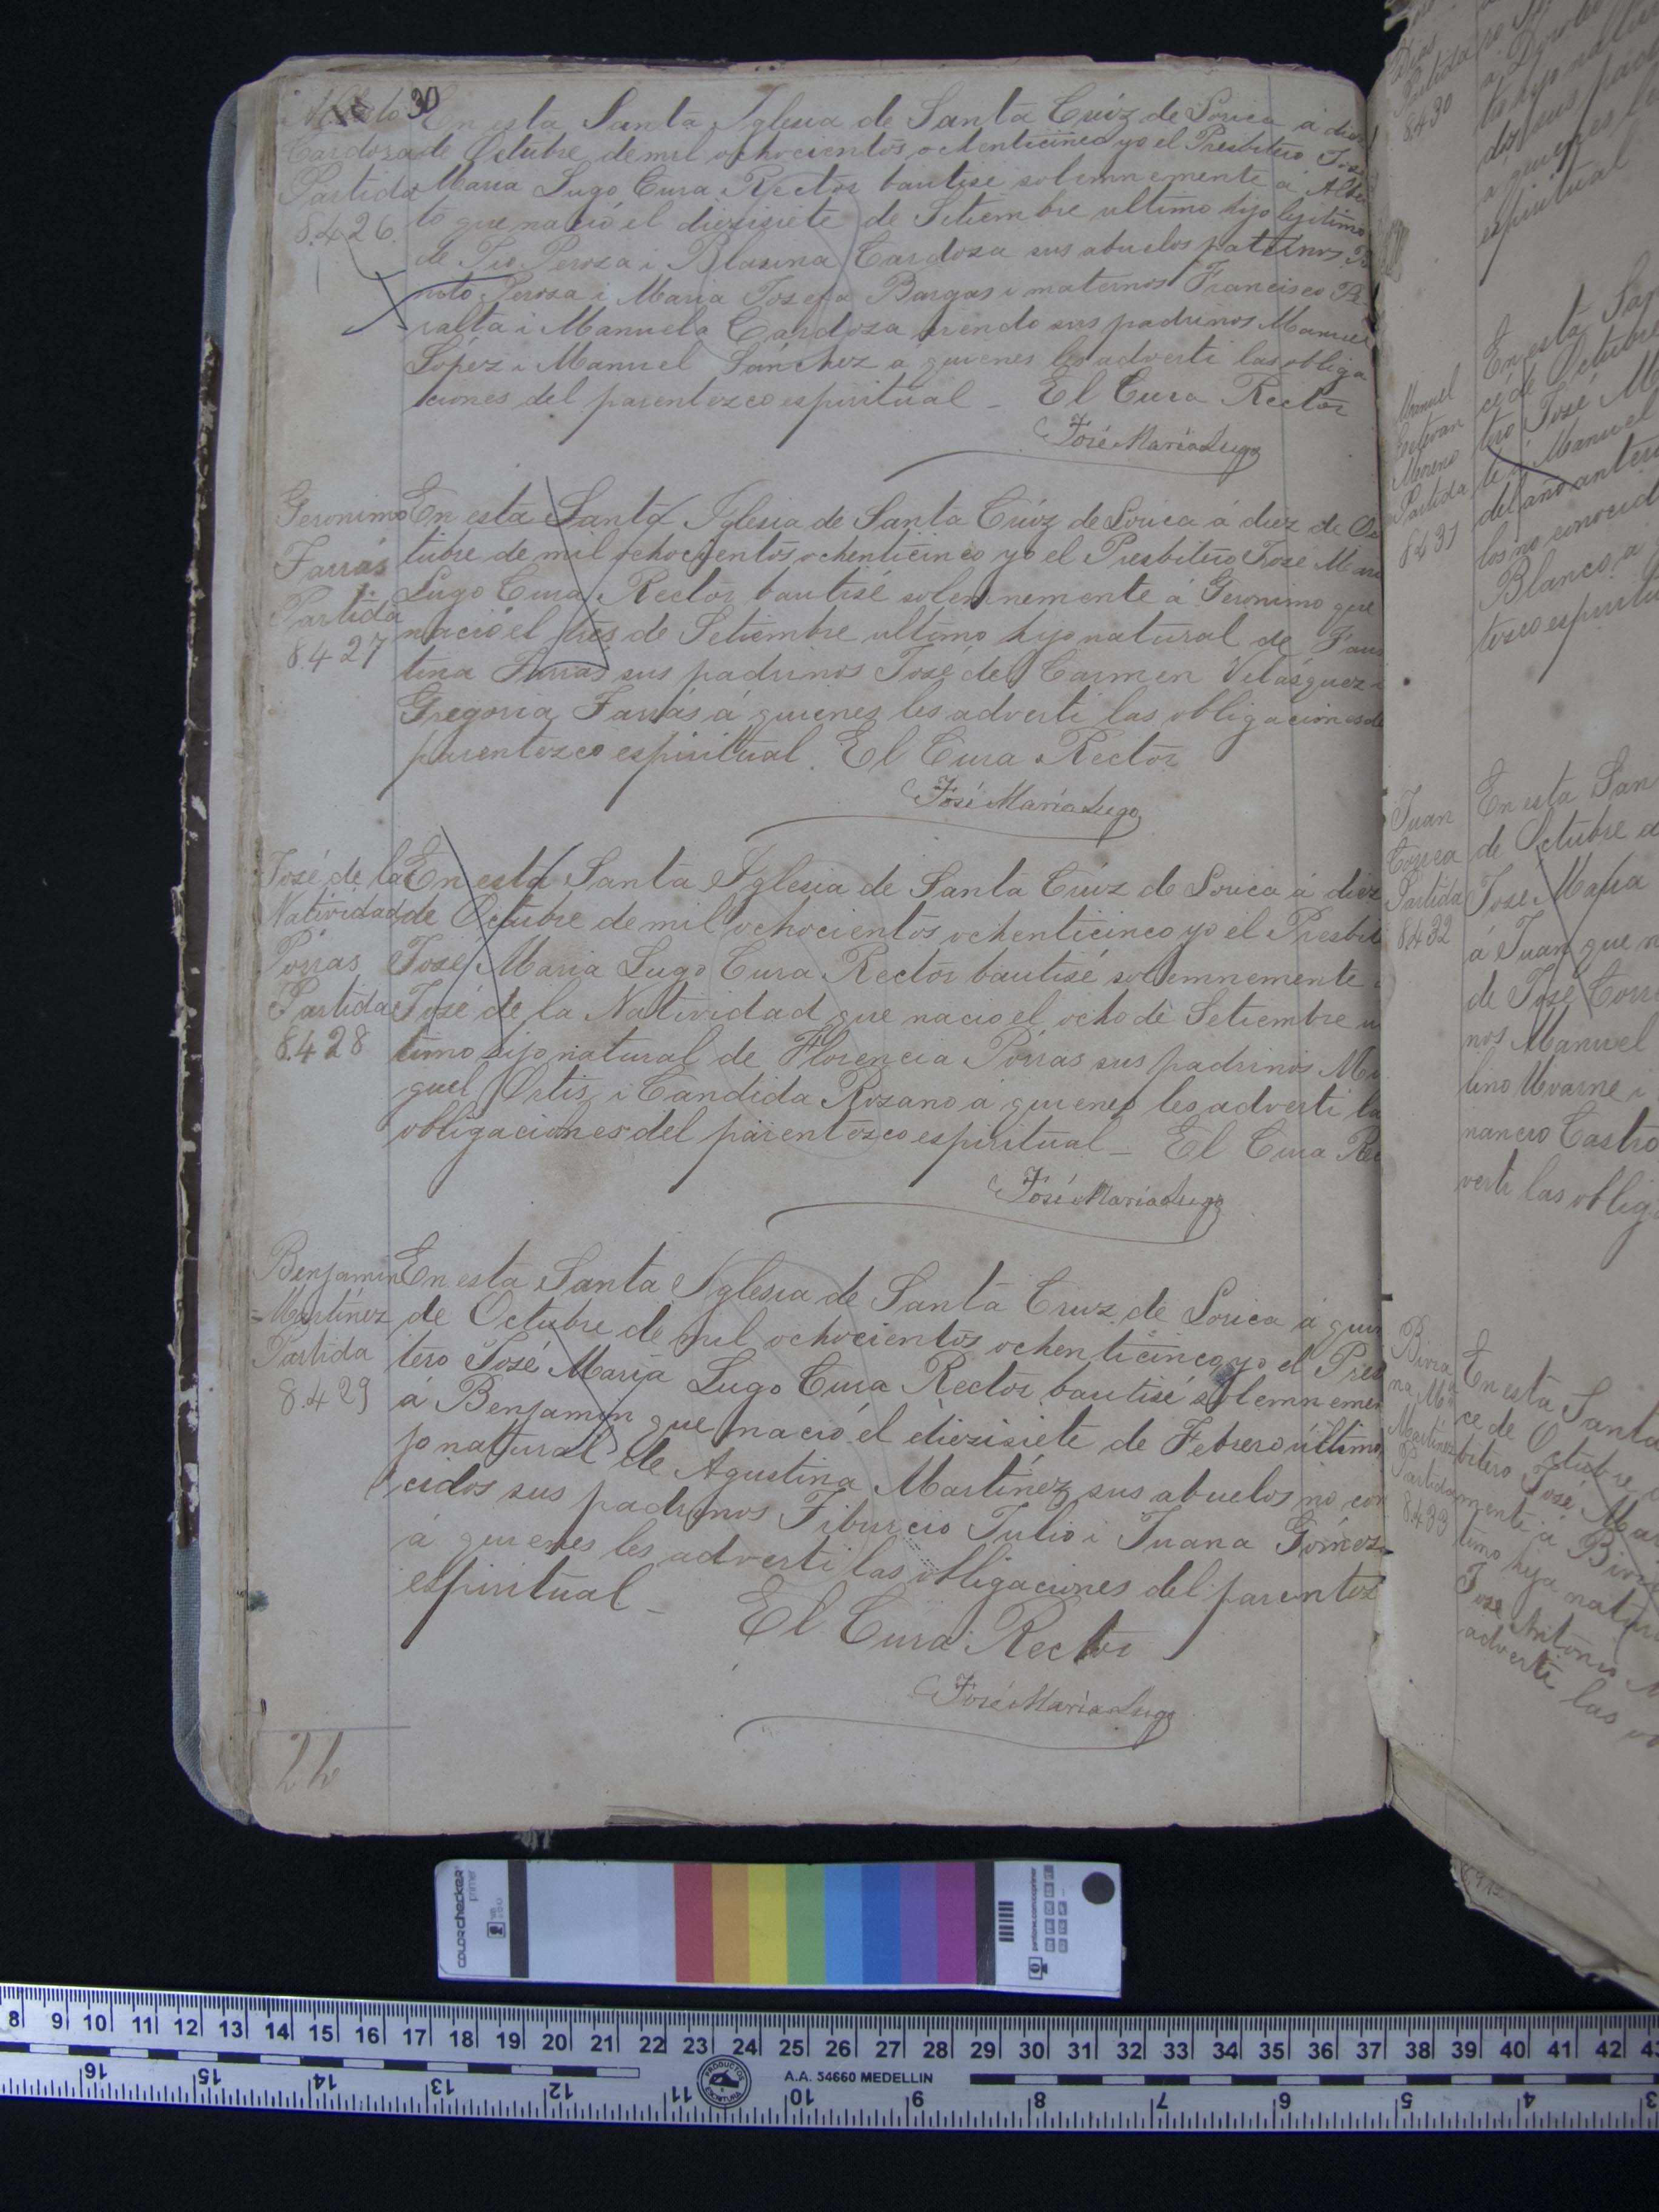 30
Cardoza
Partida
8.426
En esta Santa Iglesia de Santa Crúz de Lorica á diez
de Octubre de mil ochocientos ochenticinco yo el Presbitero José
Maria Lugo Cura Rector bautisé solemnemente á Alber
to que nació el diezisiete de Setiembre ultimo hijo lejitimo
de Pio Peroza i Blasina Cardoza sus abuelos paternos
Peroza i Maria Josefa Bargas i maternos Francisco Pe
ralta i Manuela Cardoza siendo sus padrinos Manuel
López i Manuel Sánchez a quienes les adverti las obliga
ciones del parentezco espiritual _ El Cura Rector
José Maria Lugo
Geronimo
Farrás
Partida
8.427
En esta Santa Iglesia de Santa Crúz de Lorica á diez de Oc
tubre de mil ochocientos ochenticinco yo el Presbitero José Mari
Lugo Cura Rector bautisé solemnemente á Geronimo que
nació el tres de Setiembre ultimo hijo natural de Faus
tina Farras sus padrinos José del Carmen Velásquez i
Gregoria Farrás á quienes les adverti las obligaciones de
parentezco espiritual. El Cura Rector
José Maria Lugo
José de la
Natividad
Pórras
Partida
8.428
En esta Santa Iglesia de Santa Crúz de Lorica á diez
de Octubre de mil ochocientos ochenticinco yo el Presbit
José Maria Lugo Cura Rector bautisé solemnemente
José de la Natividad que nacio el ocho de Setiembre u
timo hijo natural de Florencia Pórras sus padrinos Mi
guel Ortis i Candida Rozano á quienes les adverti la
obligaciones del parentezco espiritual _ El Cura Re
José Maria Lugo
Benjamin
Martínez
Partida
8.429
En esta Santa Iglesia de Santa Cruz de Lorica á quin
de Octubre de mil ochocientos ochenticinco yo el Pres
tero José Maria Lugo Cura Rector bautisé solemnemen
á Benjamin que nació el diezisiete de Febrero último
jo natural de Agustina Martínez sus abuelos no con
cidos sus padrinos Tiburcio Julio i Juana Gómez
á quienes les adverti las obligaciones del parentez
espiritual _ El Cura Rector
José Maria Lugo
Partida
8430
espiritual
Manuel
Estevan
Moreno
Partida
8431
En esta San
ce de Octubre
tero José M
te á Manuel
del año anteri
los no conocid
Blanco a
tezco espiritu
Juan
Correa
Partida
8432
En esta San
de Octubre d
José Maria
á Juan que n
de José Corr
nos Manuel
lino Mvarne i
nancio Castro
verti las oblig
Martinez
Partida
8433
En esta Santa
ce de Octubre
bitero José Mar
mente á Bivia
timo hija natur
José Antonio M
adverti las o
colorchecker
primer
8 9 10 11 12 13 14 15 16 17 18 19 20 21 22 23 24 25 26 27 28 29 30 31 32 33 34 35 36 37 38 39 40 41 42 43
PRODUCTOS
ESCRITURA
A.A. 54660 MEDELLIN
16 15 14 13 12 11 10 9 8 7 6 5 4 3